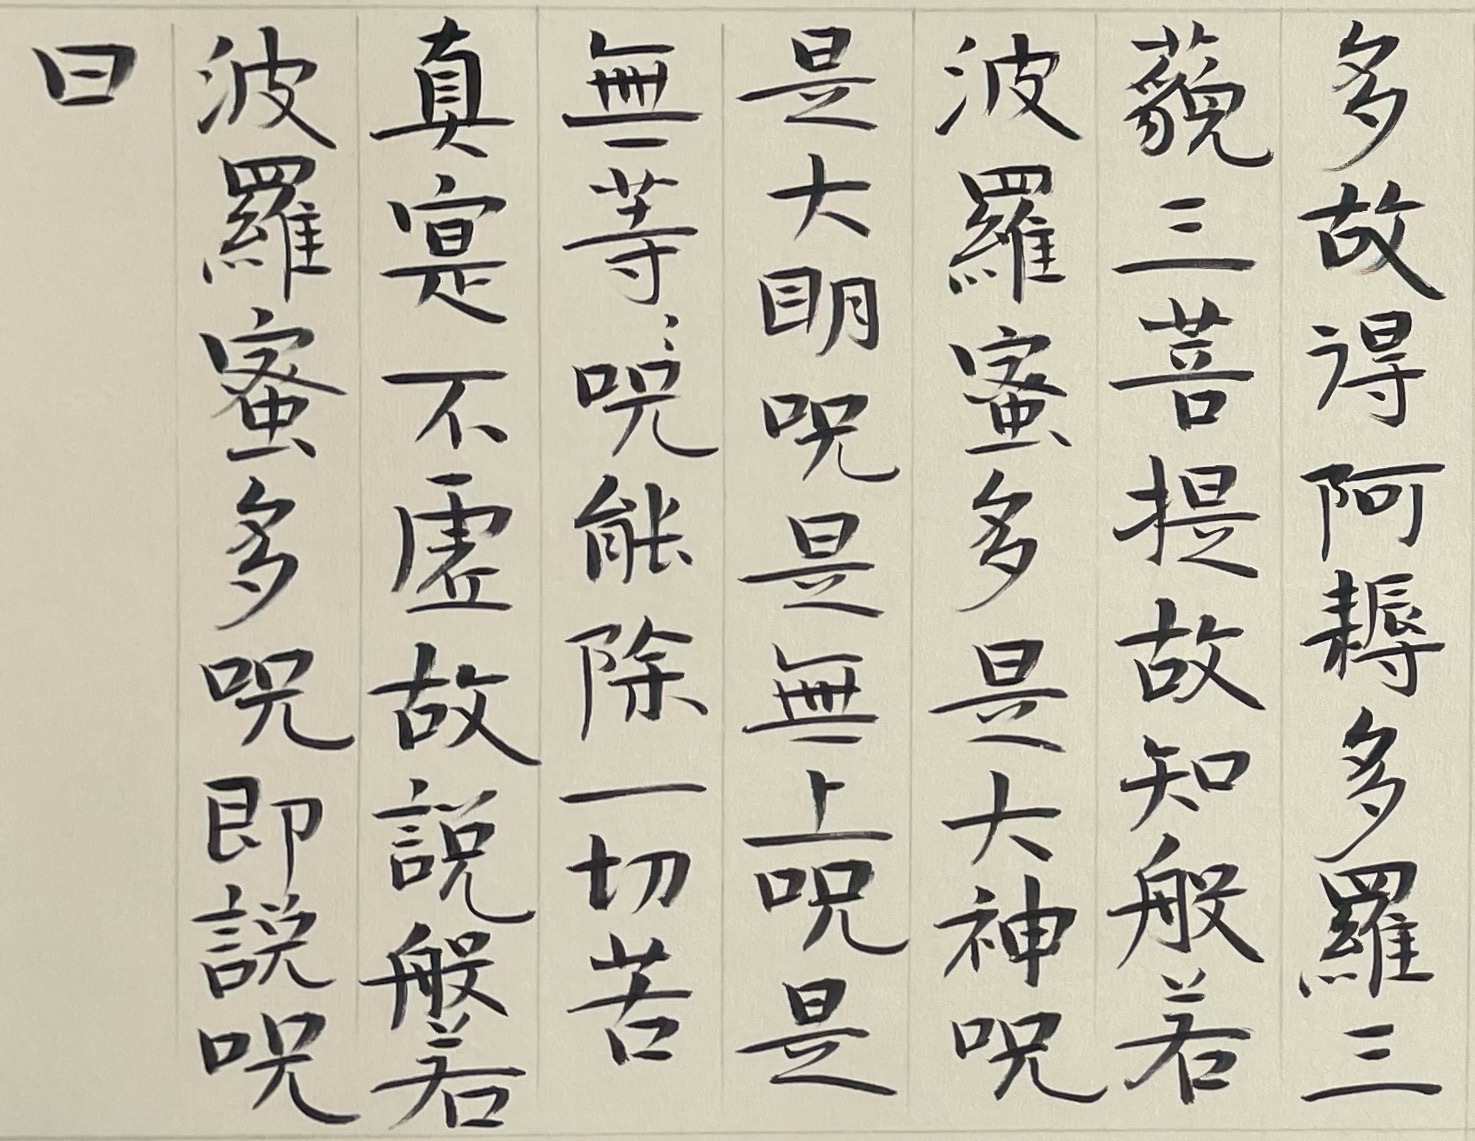 多故得阿耨多羅三
藐三菩提故知般若
波羅蜜多是大神呪
是大眀呪是無上呪是
無等〻呪能除一切苦
真寔不虛故說般若
波羅蜜多呪即說呪
曰